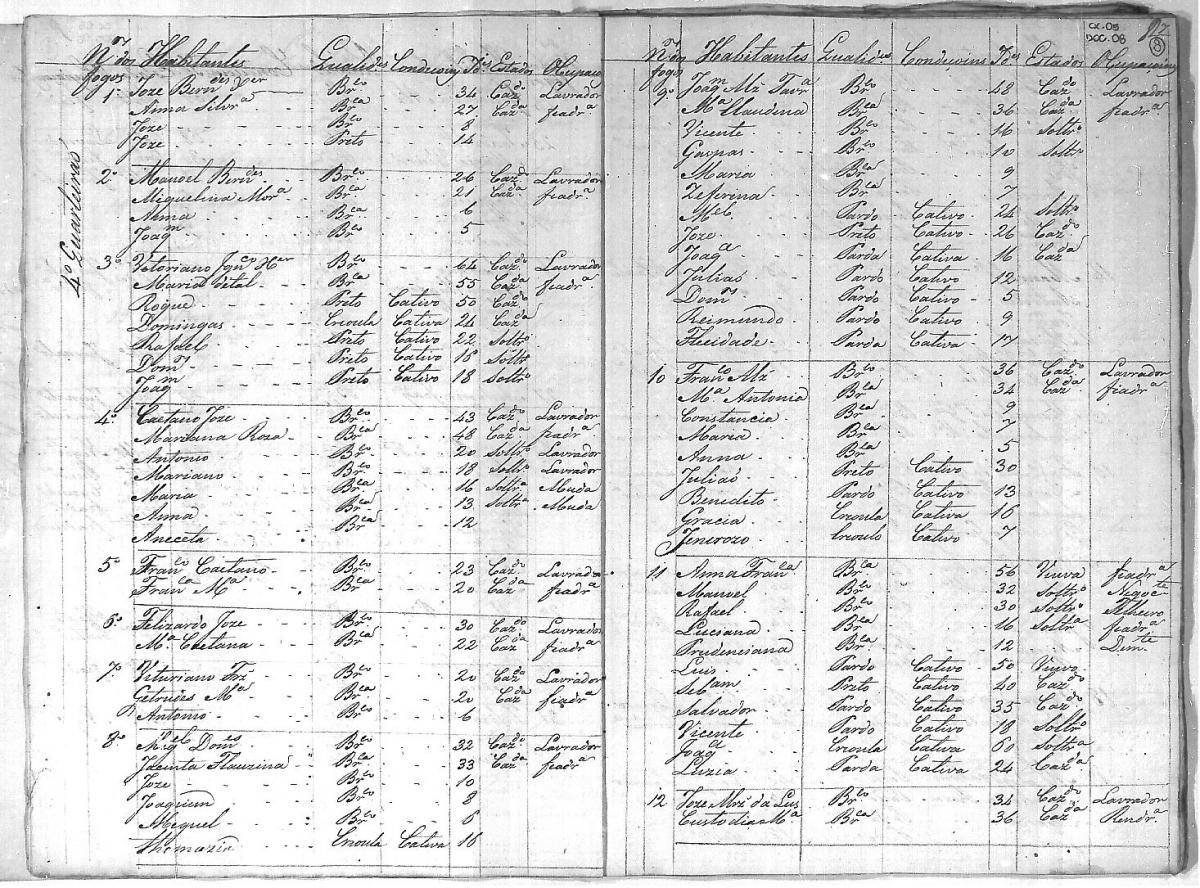 Nos. dos fogos Habitantes Qualides Condiçoins Ides Estados Ocupaçoins
4º Quarteirão
1º Joze Berndes Xer Brco 34 Cazdo Lavrador
Anna Silvra Brca 27 Cazda fiadra
Joze Brco 8
Joze Preto 14
2º Manoel Berndes Brco 26 Cazdo Lavrador
Miquelina Mora Brca 21 Cazda fiadra
Anna Brca 6
Joaqm Brco 5
3º Vitoriano Xer Brco 64 Cazdo Lavrador
Maria Brca 55 Cazda fiadra
Roque Preto Cativo 50 Cazdo
Domingas Crioula Cativa 24 Cazda
Rafael Preto Cativo 22 Soltro
Domos Preto Cativo 18 Soltro
Joaqm Preto Cativo 18 Soltro
4º Caetano Joze Brco 43 Cazdo Lavrador
Mariana Roza Brca 48 Cazda fiadra
Antonio Brco 20 Soltro Lavrador
Mariano Brco 18 Soltro Lavrador
Maria Brca 16 Soltra Muda
Anna Brca 13 Soltra Muda
Aneceta Brca 12
5º Franco Caetano Brco 23 Cazdo Lavrador
Franca Ma Brca 20 Cazda fiadra
6º Felizardo Joze Brco 30 Cazdo Lavrador
Ma Caetana Brca 22 Cazda fiadra
7º Vituriano Frz Brco 20 Cazdo Lavrador
Getrudes Ma Brca 20 Cazda fiadra
Antonio Brco 6
8º Domes Brco 32 Cazdo Lavrador
Jacinta Flauzina Brca 33 Cazda fiadra
Joze Brco 10
Joaquim Brco 8
Miguel Brco 6
Thomazia Crioula Cativa 16
CX.05
DOC.08
8
Nos. dos fogos Habitantes Qualides Condiçoins Ides Estados Ocupaçoins
9º Joaqm Mz Tavr Brco 48 Cazdo Lavrador
Ma Claudina Brca 36 Cazda fiadra
Vicente Brco 16 Soltro
Gaspar Brco 10 Soltro
Maria Brca 9
Zeferina Brca 7
Mel Pardo Cativo 24 Soltro
Joze Preto Cativo 26 Cazdo
Joaqa Parda Cativa 16 Cazda
Julião Pardo Cativo 12
Domos Pardo Cativo 5
Reimundo Pardo Cativo 9
Flicidade Parda Cativa 17
10 Franco Mz Brco 36 Cazdo Lavrador
Ma Antonia Brca 34 Cazda fiadra
Constancia Brca 9
Maria Brca 7
Anna Brca 5
Julião Preto Cativo 30
Benedito Pardo Cativo 13
Gracia Crioula Cativa 16
Jenerozo Crioulo Cativo 7
11 Anna Franca Brca 56 Viuva fiadra
Manuel Brco 32 Soltro Negocte
Rafael Brco 30 Soltro Selheiro
Luciana Brca 16 Soltra fiadra
Prudenciana Brca 12 Demte
Luis Pardo Cativo 50 Viuvo
Sebam Preto Cativo 40 Cazdo
Salvador Pardo Cativo 35 Cazdo
Vicente Pardo Cativo 18 Soltro
Joaqa Crioula Cativa 60 Soltra
Luzia Parda Cativa 24 Cazda
12 Joze Mrz da Luis Brco 34 Cazdo Lavrador
Custodia Ma Brca 36 Cazda Rendra